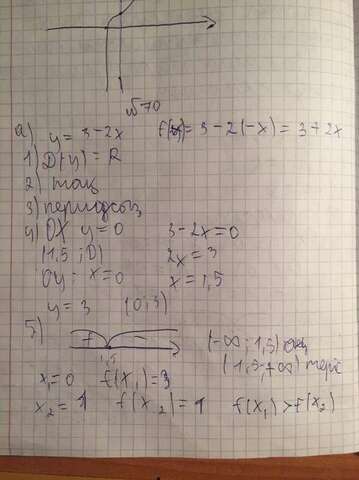 №70
а) y = 3-2x f(-x) = 3-2(-x) = 3+2x
1) D(y) = R
2) тақ
3) периодсыз
4) OX y=0 3-2x=0
(1,5 ; 0) 2x=3
Oy: x=0 x=1,5
y=3 (0;3)
5) + -
1,5 (-∞; 1,5) оң
(1,5;+∞) теріс
x₁=0 f(x₁)=3
x₂=1 f(x₂)=1 f(x₁)>f(x₂)